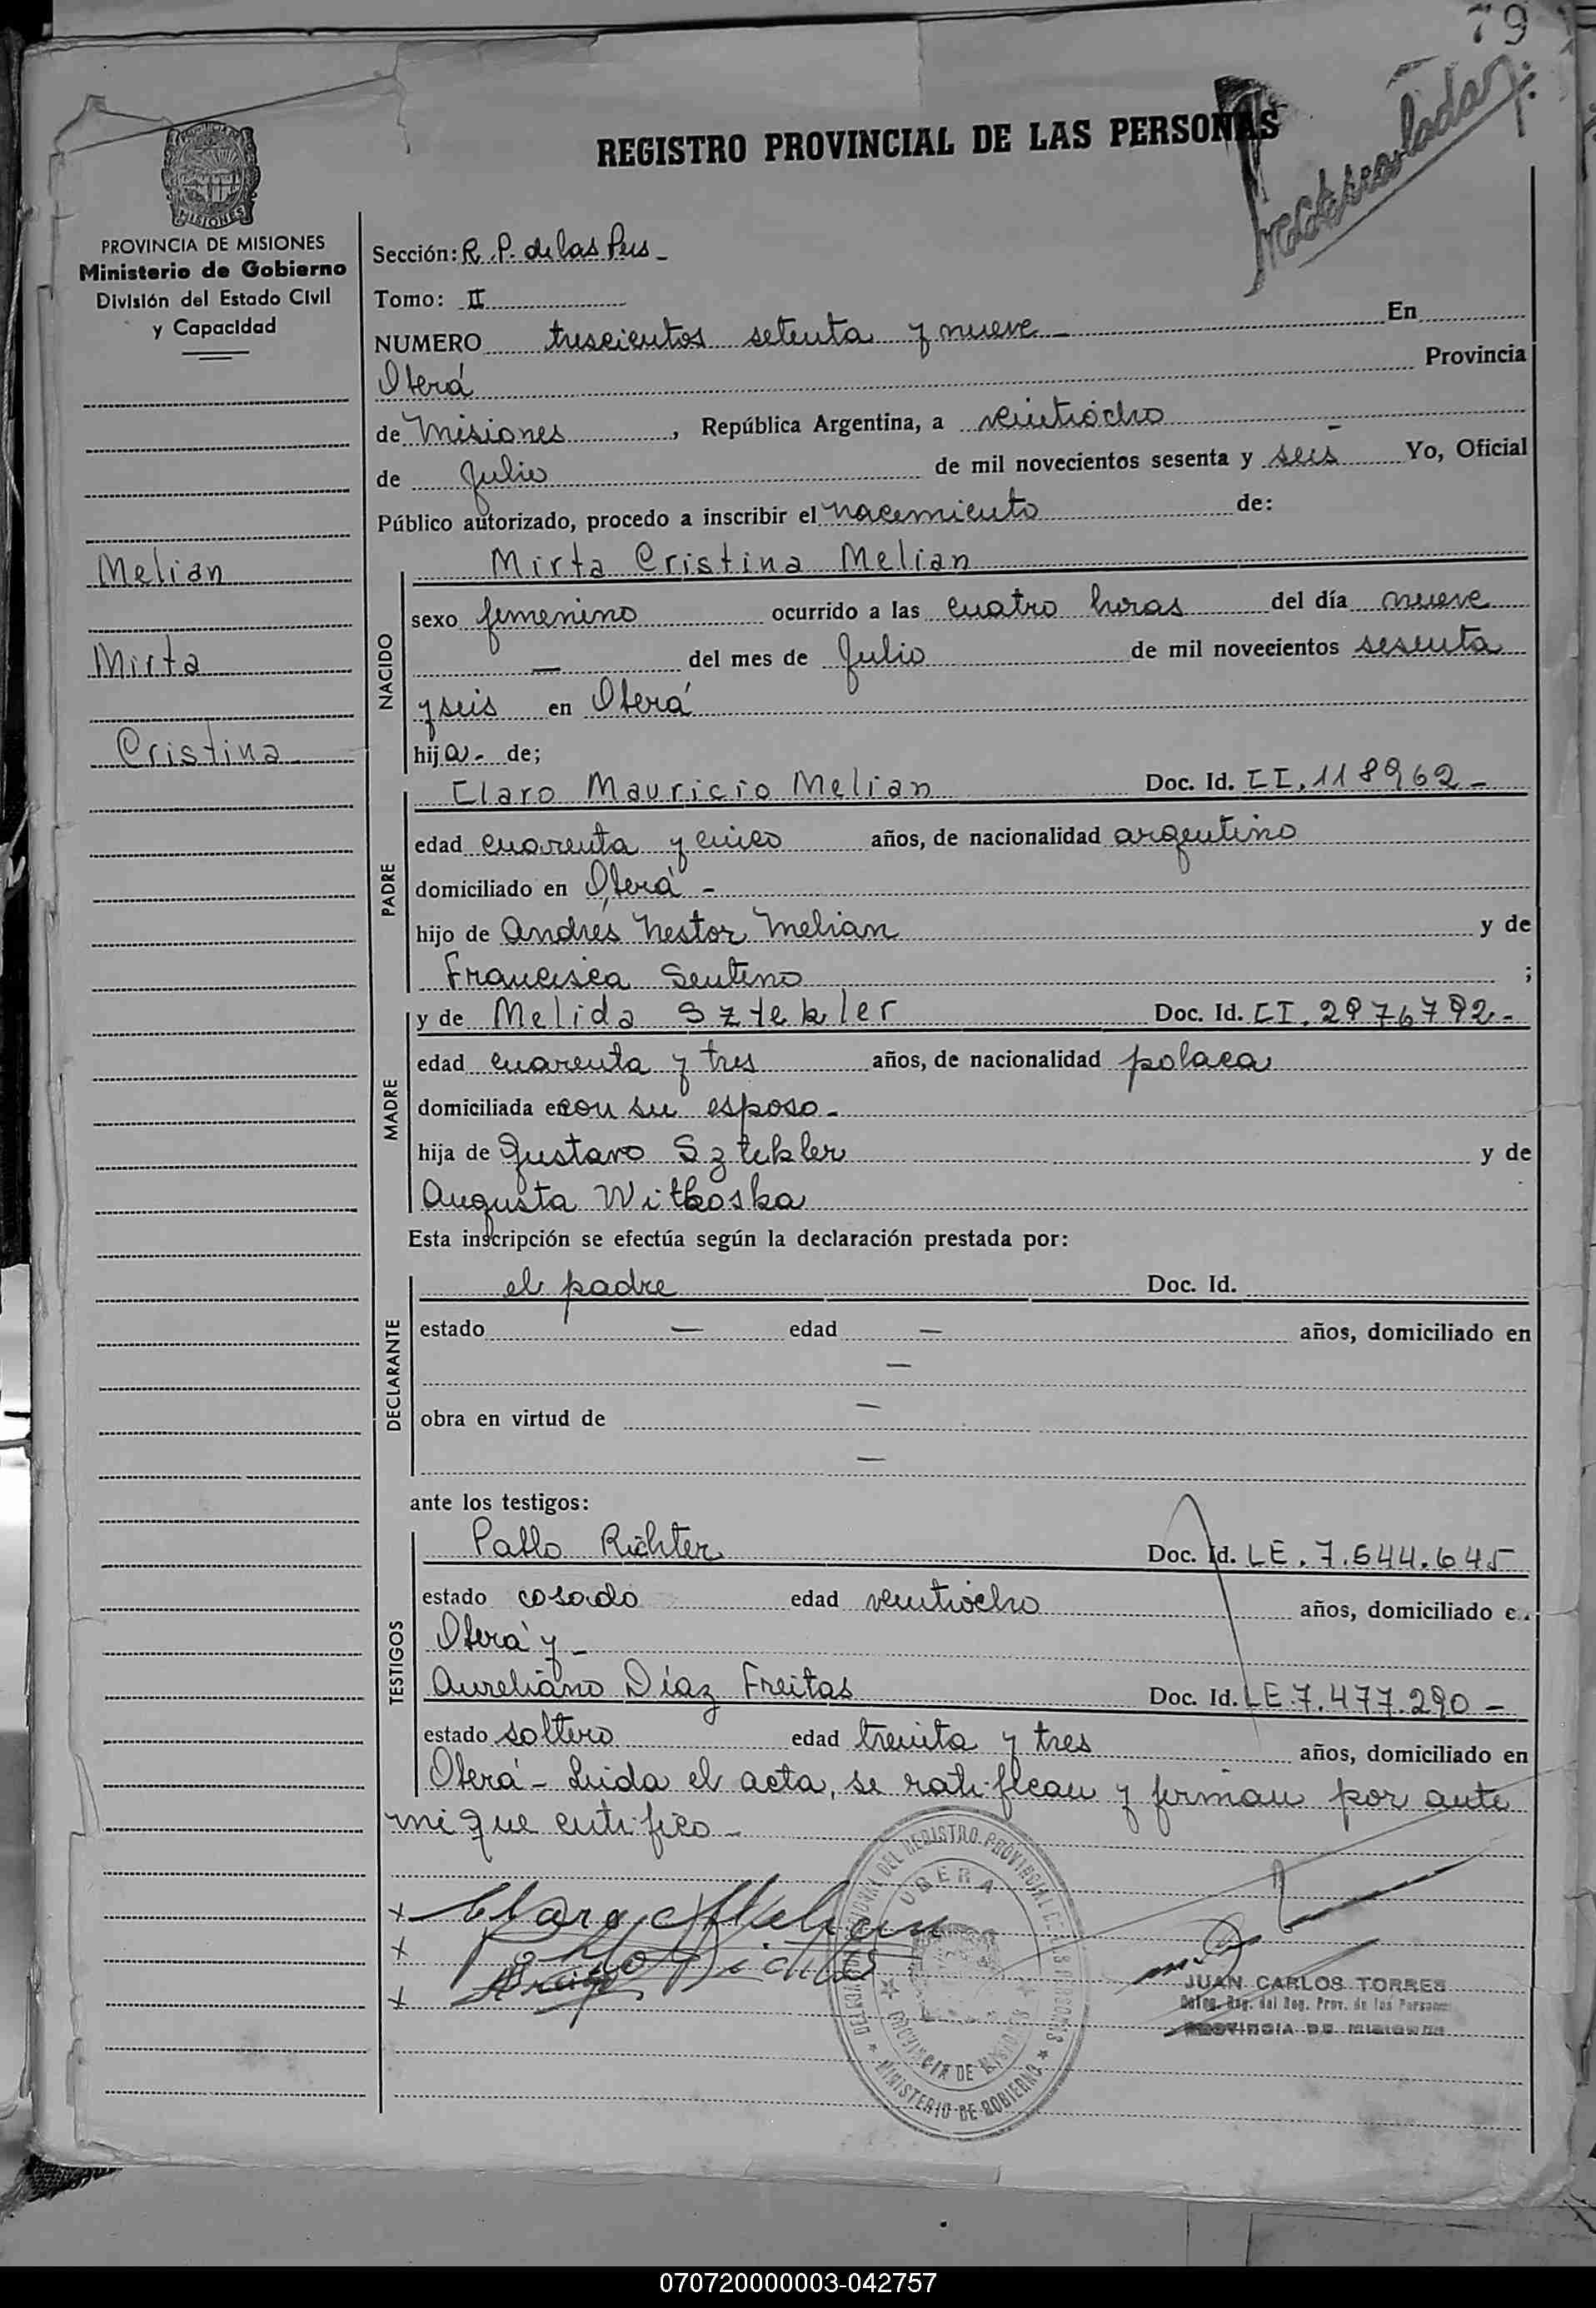 79
REGISTRO PROVINCIAL DE LAS PERSONAS
MISIONES
PROVINCIA DE MISIONES
Ministerio de Gobierno
División del Estado Civil
y Capacidad
Melian
Mirta
Cristina
Sección: R. P. de las Pers -
Tomo: II
NUMERO trescientos setenta y nueve - En
Oberá Provincia
de Misiones, República Argentina, a veintiocho
de Julio de mil novecientos sesenta y seis Yo, Oficial
Público autorizado, procedo a inscribir el nacimiento de:
NACIDO
Mirta Cristina Melian
sexo femenino ocurrido a las cuatro horas del día nueve
— del mes de Julio de mil novecientos sesenta
y seis en Oberá
hija - de;
PADRE
Claro Mauricio Melian Doc. Id. CI. 118962 -
edad cuarenta y cinco años, de nacionalidad argentino
domiciliado en Oberá -
hijo de Andrés Nestor Melian y de
Francisca Senteno ;
MADRE
y de Melida Sztekler Doc. Id. CI. 2976792 -
edad cuarenta y tres años, de nacionalidad polaca
domiciliada en con su esposo -
hija de Gustavo Sztekler y de
Augusta Witkoska
Esta inscripción se efectúa según la declaración prestada por:
DECLARANTE
el padre Doc. Id.
estado — edad — años, domiciliado en
—
obra en virtud de —
—
ante los testigos:
TESTIGOS
Pablo Richter Doc. Id. LE. 7.544.645
estado casado edad veintiocho años, domiciliado e.
Oberá y -
Aureliano Díaz Freitas Doc. Id. LE 7.477.290 -
estado soltero edad treinta y tres años, domiciliado en
Oberá - Leida el acta, se ratifican y firman por ante
mi que certifico -
x Claro M Melian
x Pablo Richter
x
DEL REGISTRO PROVINCIAL DE LAS PERSONAS
OBERA
PROVINCIA DE MISIONES
MINISTERIO DE GOBIERNO
JUAN CARLOS TORRES
Deleg. Reg. del Reg. Prov. de las Personas
PROVINCIA DE MISIONES
070720000003-042757